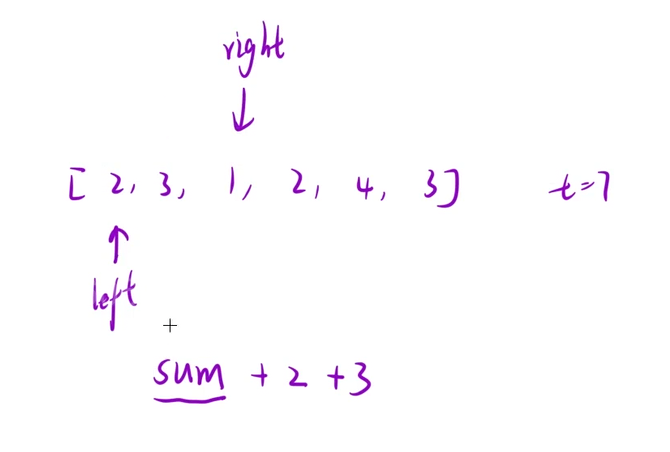 right
[ 2, 3, 1, 2, 4, 3] t=7
left
sum + 2 + 3